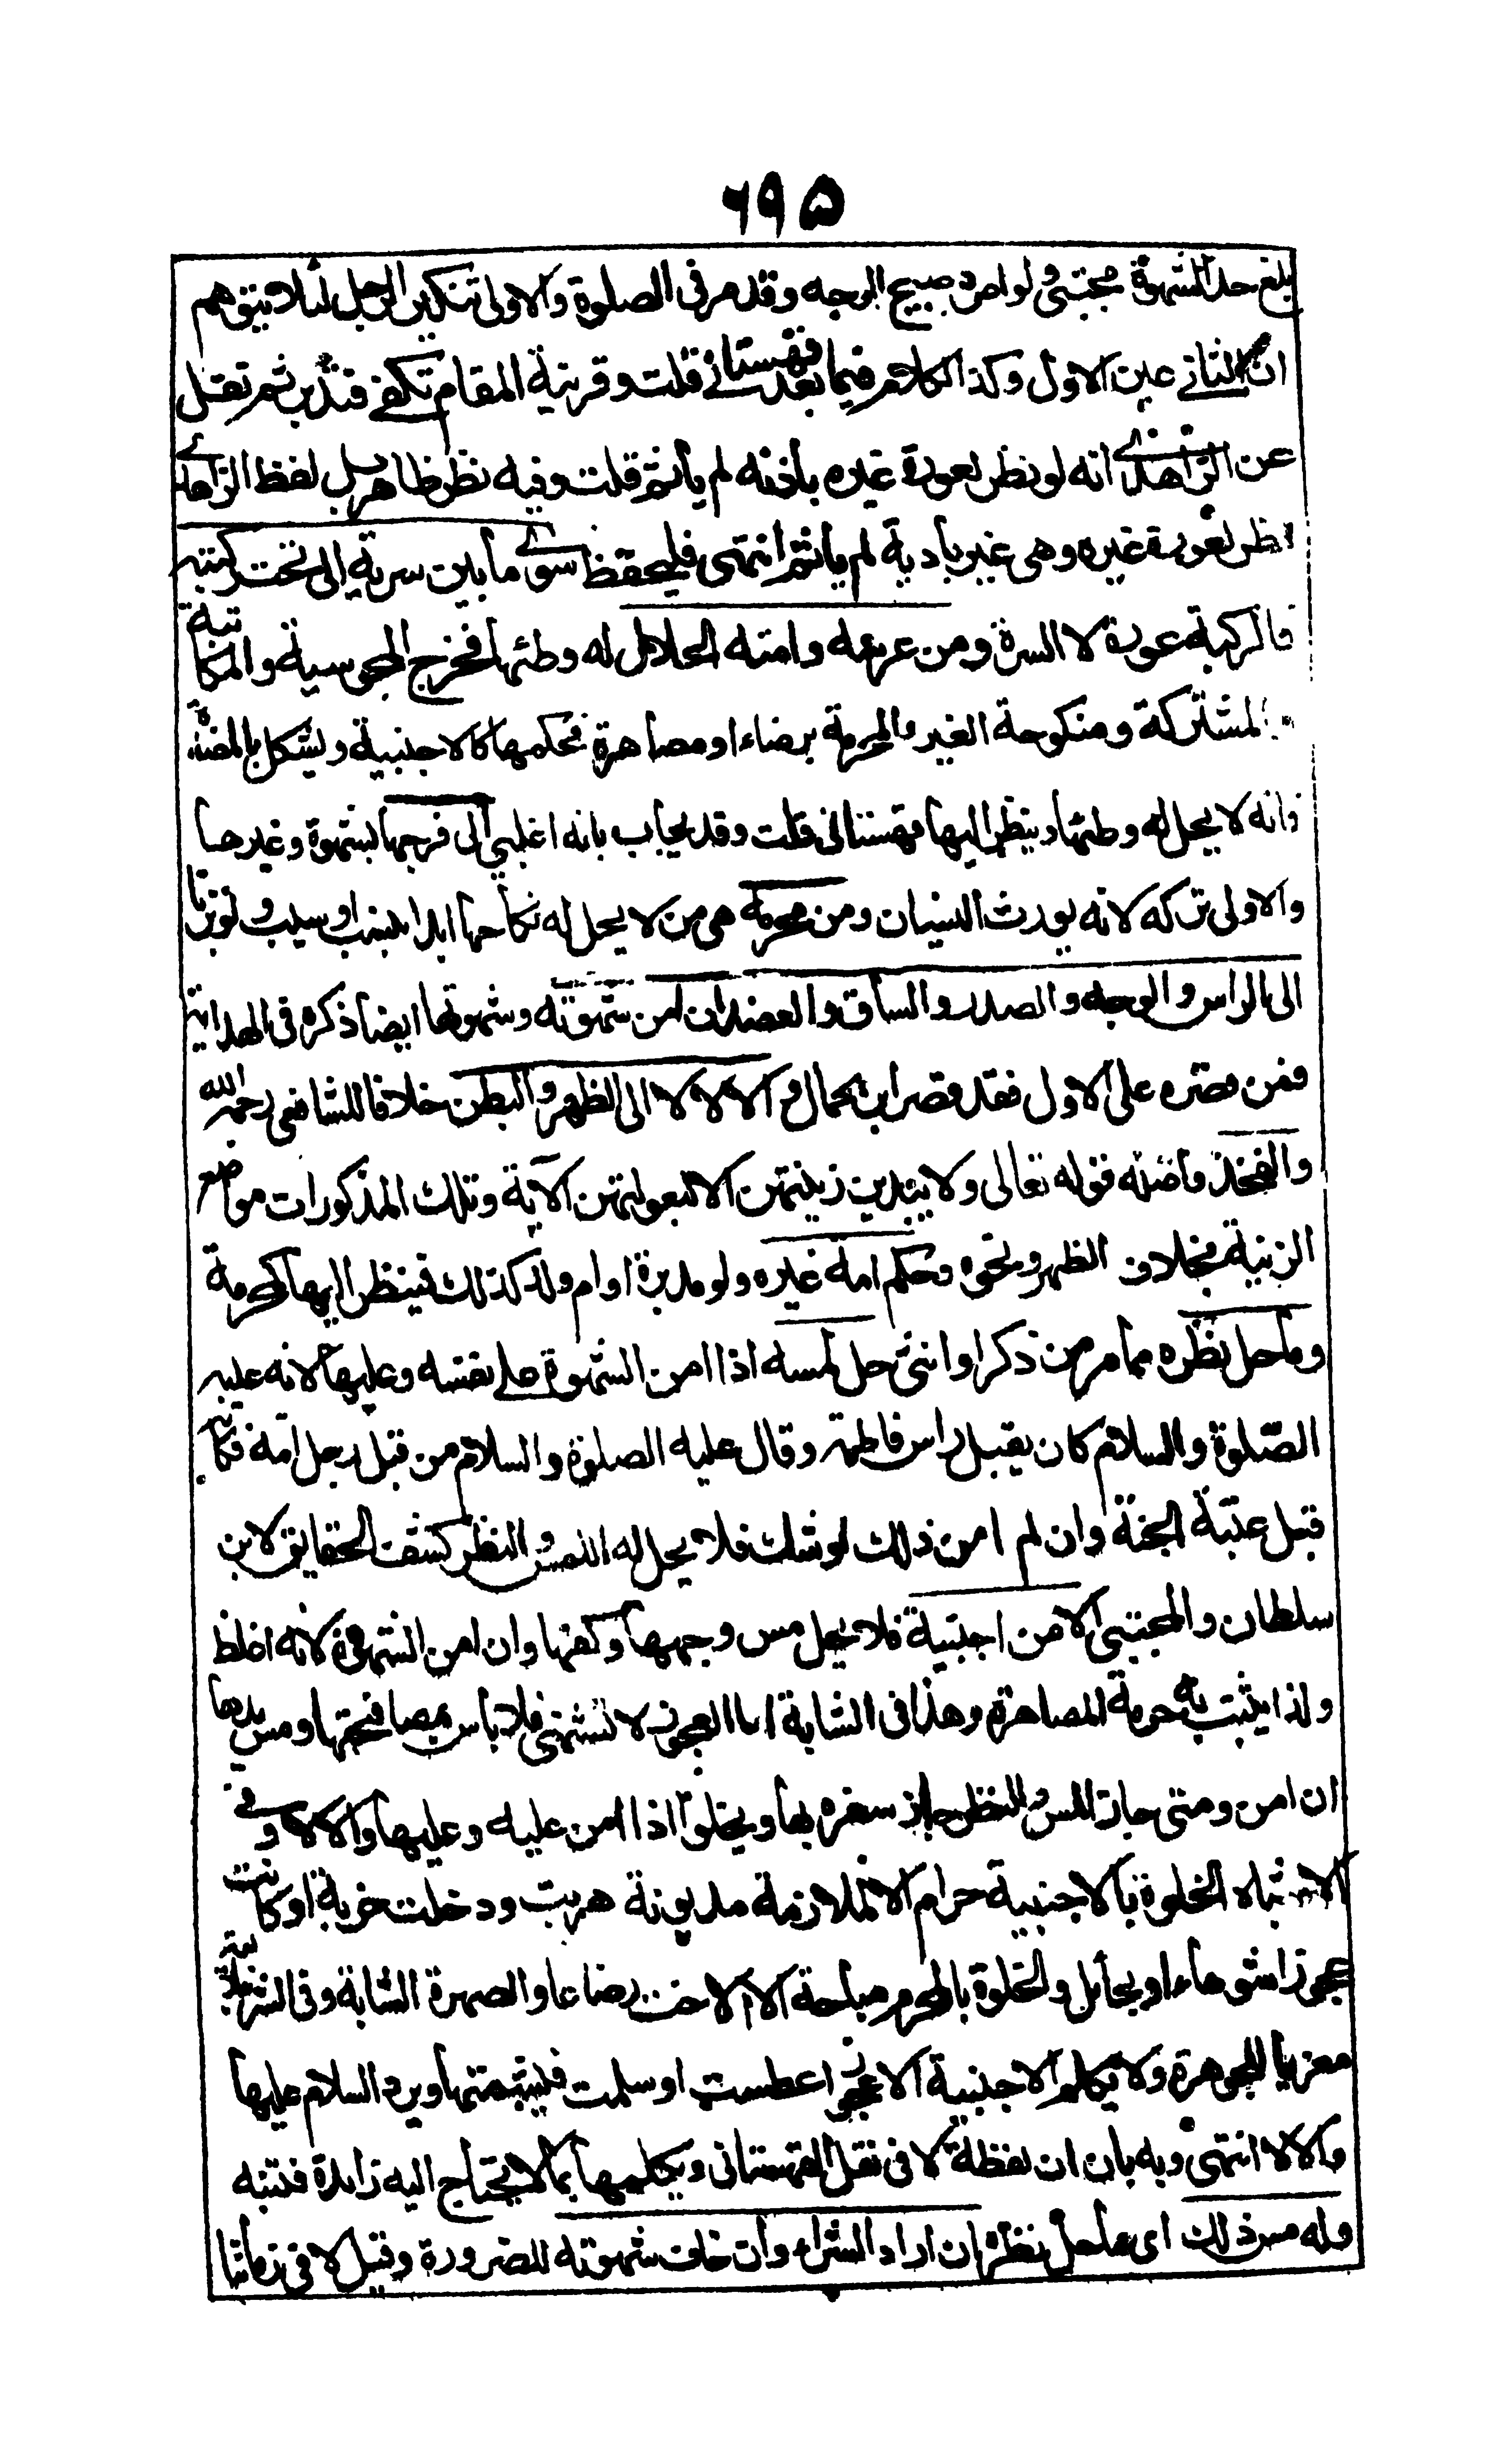 ٦٩٥
بلغ حد الشهوة مجتبى ولو امرد صبيح الوجه وقد مر فى الصلوة والاولى تنكير الرجل لئلا يتوهم
ان الثانى عين الاول وكذا الكلام فيما بعد قهستانى قلت وقرينة المقام تكفى فتدبر ثم نقل
عن الزاهدى انه لو نظر لعورة غيره باذنه لم يأثم قلت وفيه نظر ظاهر بل لفظ الزاهدى
نظر لعورة غيره وهى غير بادية لم يأثم انتهى فليحفظ سوى ما بين سرته الى تحت ركبته
فالركبة عورة لا السرة ومن عرسه وامته الحلال له وطئها فخرج المجوسية والمكاتبة
والمشتركة ومنكوحة الغير والمحرمة برضاع او مصاهرة فحكمها كالاجنبية ويشكل بالمفضاة
فانه لا يحل له وطئها وينظر اليها قهستانى قلت وقد يجاب بانه اغلبى الى فرجها بشهوة وغيرها
والاولى تركه لانه يورث النسيان ومن محرمه هى من لا يحل له نكاحها ابدا بنسب او سبب ولو بزنا
الى الراس والوجه والصدر والساق والعضد ان امن شهوته وشهوتها ايضا ذكره فى الهداية
فمن قصره على الاول فقد قصر ابن كمال والا لا لا الى الظهر والبطن خلافا للشافعى رحمه الله
والفخذ واصله قوله تعالى ولا يبدين زينتهن الا لبعولتهن الآية وتلك المذكورات مواضع
الزينة بخلاف الظهر ونحوه وحكم امة غيره ولو مدبرة او ام ولد كذلك فينظر اليها كمحرمة
وما حل نظره مما مر من ذكر او انثى حل لمسه اذا امن الشهوة على نفسه وعليها لانه عليه
الصلوة والسلام كان يقبل راس فاطمة وقال عليه الصلوة والسلام من قبل رجل امه فكانه
قبل عتبة الجنة وان لم امن ذلك لو شك فلا يحل له اللمس والنظر كشف الحقايق لابن
سلطان والمجتبى الا من اجنبية فلا يحل مس وجهها وكفها وان امن الشهوة لانه اغلظ
ولذا يثبت به حرمة المصاهرة وهذا فى الشابة اما العجوز لا تشتهى فلا باس بمصافحتها ومس يدها
ان امن ومتى جاز اللمس والنظر جاز سفره بها ويخلو اذا امن عليه وعليها والا لا وفى
الاشباه الخلوة بالاجنبية حرام الا لملازمة مديونة هربت ودخلت خربة او كانت
عجوزا شوهاء او بحائل والخلوة بالمحرم مباحة الا الاخت رضاعا والصهرة الشابة وفى الشرنبلالية
معزيا للجوهرة ولا يكلم الاجنبية الا عجوزا عطست او سلمت فيشمتها ويرد السلام عليها
والا لا انتهى وبه بان ان لفظة لا فى نقل القهستانى ويكلمها بما لا يحتاج اليه زايدة فتنبه
وله مس ذلك اى ما حل نظره ان اراد الشراء وان خاف شهوته للضرورة وقيل لا فى زماننا